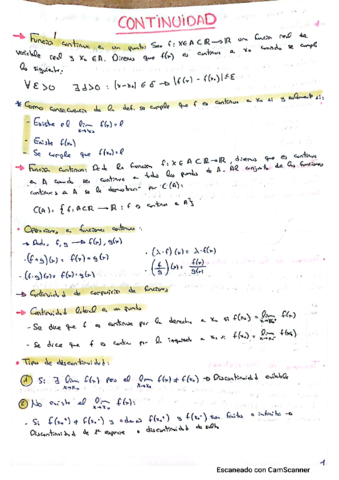 CONTINUIDAD
→ Función continua en un punto: Sea f: x∈A⊂ℝ→ℝ una función real de
variable real y x₀∈A. Diremos que f(x) es continua en x₀ cuando se cumple
lo siguiente:
∀ε>0 ∃δ>0 : |x-x₀|≤δ → |f(x)-f(x₀)|≤ε
* Como consecuencia de la def. se cumple que f es continua en x₀ si y solamente si:
- Existe el lim x→x₀ f(x)=l
- Existe f(x₀)
- Se cumple que f(x₀)=l
→ Función continua: Dada la función f: x∈A⊂ℝ→ℝ, diremos que es continua
en A cuando es continua en todos los puntos de A. Al conjunto de las funciones
continuas en A se le denota por C(A):
C(A): { f: A⊂ℝ→ℝ : f es continua en A }
• Operaciones de funciones continuas:
→ Dadas f, g → f(x), g(x)
· (f+g)(x) = f(x)+g(x)
· (λ·f)(x) = λ·f(x)
· (f·g)(x) = f(x)·g(x)
· (f/g)(x) = f(x)/g(x)
→ Continuidad de composición de funciones
→ Continuidad lateral en un punto:
- Se dice que f es continua por la derecha en x₀ si f(x₀) = lim x→x₀⁺ f(x)
- Se dice que f es contin por la izquierda en x₀ si f(x₀) = lim x→x₀⁻ f(x)
• Tipos de discontinuidad:
① Si ∃ lim x→x₀ f(x) pero el lim x→x₀ f(x) ≠ f(x₀) → Discontinuidad evitable
② No existe el lim x→x₀ f(x):
- Si f(x₀⁺) ≠ f(x₀⁻) y además f(x₀⁺) y f(x₀⁻) son finitos o infinito →
Discontinuidad de 1ª especie o discontinuidad de salto
1
Escaneado con CamScanner